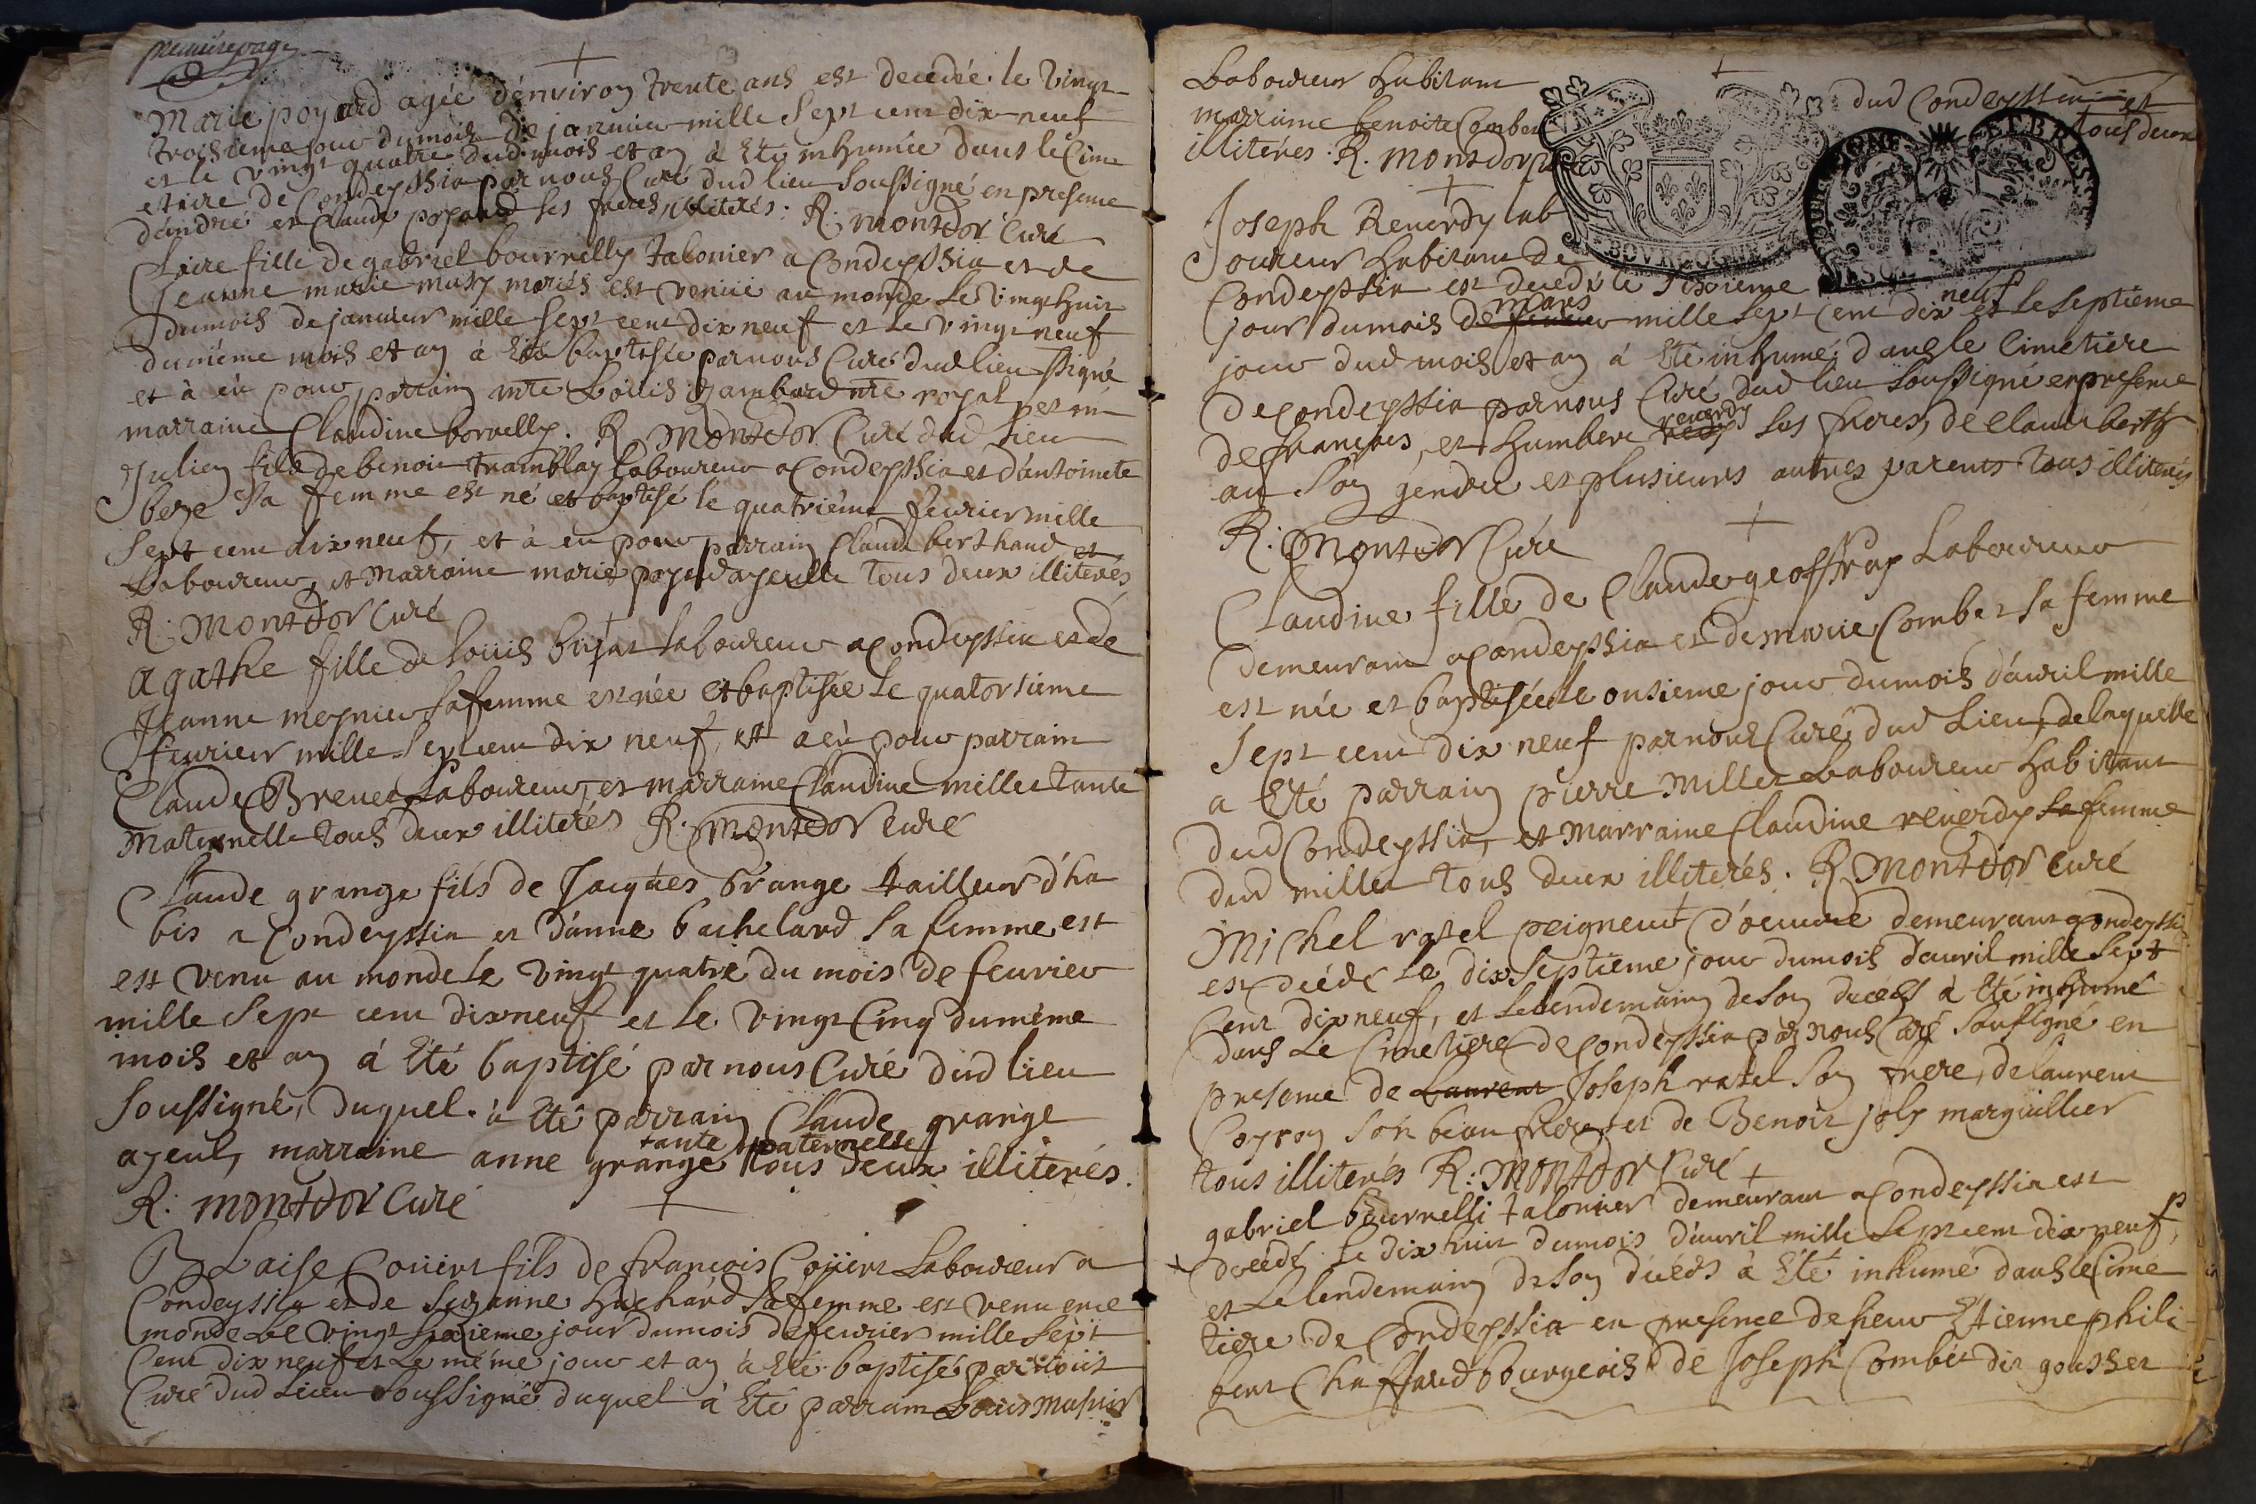 premiere page
Marie poyard agée d'environ trente ans est decedée le vingt
troisieme jour du mois de janvier mille sept cent dix neuf
et le vingt quatre dud. mois et an à été inhumée dans le cime
etiere de Condeyssia par nous Curé dud lieu soussigné en presence
d'andré et Claude poyard ses freres illiterés. R: montdor Curé
Claire fille de gabriel bournelly talonier a Condeyssia et de
Jeanne marie musy mariés est venue au monde le vingt huit
du mois de janvier mille sept cent dix neuf et le vingt neuf
du même mois et an à été baptisée par nous Curé dud lieu ssigné
et à eu pour parrain mtre Loüis Jambard ntre royal et
marraine Claudine borvelly. R montdor Curé dud lieu
Julien fils de benoit tramblay laboureur a Condeyssia et d'antoinete
sa femme est né et baptisé le quatriéme fevrier mille
sept cent dix neuf, et à eu pour parrain Claude berthaud et
Laboureur, et marraine marie ayeulle tous deux illiterés
R: montdor Curé
agathe fille de Loüis laboureur a Condeyssia et de
Jeanne meynier sa femme est née et baptisée le quatorsieme
feurier mille sept cent dix neuf, et a eu pour parrain
Claude Brevet Laboureur, et marraine Claudine millet tante
maternelle tous deux illiterés R: montdor Curé
Claude grange fils de Jacques Grange tailleur d'ha
bis a Condeyssia et d'anne bachelard sa femme est
est venu au monde le vingt quatre du mois de feurier
mille sept cent dix neuf et le vingt Cinq du même
mois et an à été baptisé par nous Curé dud lieu
soussigné, duquel à été parrain Claude grange
tante paternelle
ayeul, marraine anne grange tous deux illiterés.
R: montdor Curé
Blaise Coüert fils de françois Coüert Laboureur a
Condeyssia et de Suzanne huchard sa femme est venu en ce
monde Le vingt sixieme jour du mois de feurier mille sept
Cent dix neuf et Le même jour et an à été baptisé par nous
Curé dud Lieu soussigné duquel à été parrain Loüis
Laboureur habitant dud Condeyssia et
marraine benoite Combet tous deux
illiterés. R. montdor
VIN
BOVRGOGNE
Joseph Reverdy lab
oureur habitant de
Condeyssia est decedé le sixieme
mars neuf
jour du mois de feurier mille sept cent dix et le septieme
jour dud mois et an à été inhumé dans le Cimetiere
de Condeyssia par nous Curé dud lieu soussigné en presence
reverdy
de françois, et humbert ses freres, de Claude berth
au son gendre et plusieurs autres parents tous illiterés
R: montdor Curé
Claudine fille de Claude geoffray Laboureur
demeurant a Condeyssia et de marie Combet sa femme
est née et baptisée le onsieme jour du mois d'avril mille
sept cent dix neuf par nous Curé dud Lieu, de laquelle
a été parrain pierre millet Laboureur habittant
dud Condeyssia, et marraine Claudine reverdy sa femme
dud millet tous deux illiterés. R montdor Curé
Michel ratel peigneur d'oeuvre demeurant Condeyssia
est decédé le dix septieme jour du mois d'avril mille sept
Cent dix neuf, et le lendemain de son decés à été inhumé
dans le Cimetiere de Condeyssia par nous Curé sousigné en
presence de Laurent Joseph ratel son frere, de laurent
Coyron son beau frere et de Benoit joly margúillier
tous illiterés R: montdor Curé
gabriel bournelli talonier demeurant a Condeyssia est
decedé le dix huit du mois d'avril mille sept cent dix neuf,
et Le lendemain de son decéds à été inhumé dans le Cime
tiere de Condeyssia en presence de sieur Etienne phili
bert Chaffard bourgeois de Joseph Combet dit gousset